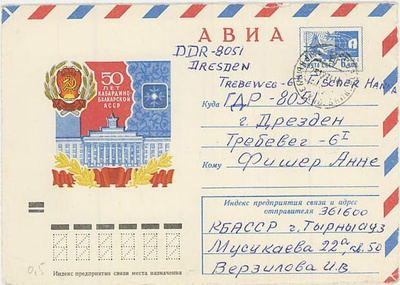 АВИА
DDR-8051
DRESDEN
TREBEWEG-6
50
ЛЕТ
КАБАРДИНО-
БАЛКАРСКОЙ
АССР
Куда ГДР - 8051
г. Дрезден
Требевег - 6
Кому Фишер Анне
Индекс предприятия связи и адрес
отправителя 361600
КБАССР г. Тырныауз
Мусукаева 22а, кв. 50
Верзилова И.В
Индекс предприятия связи места назначения
0,5